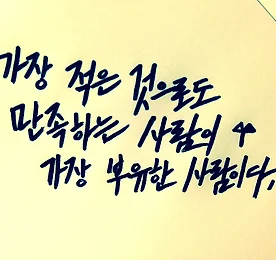 가장 적은 것으로도
만족하는 사람이
가장 부유한 사람이다.